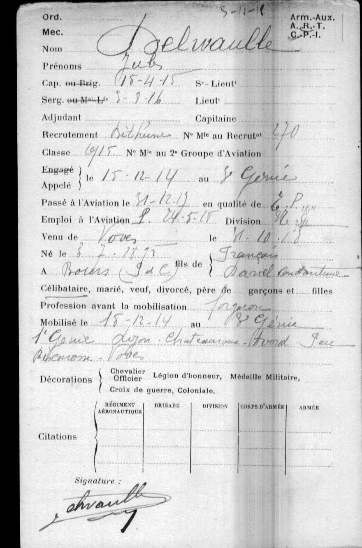 Ord. 5-11-18 Arm.-Aux.
Mec. A. R. T.
C. P. I.
Nom Delvaulle
Prénoms Jules
Cap. ou Brig. 15-4-15 Sᵗ-Lieutᵗ
Serg. ou Mᵃˡ-Lⁱˢ 3-9-16 Lieutᵗ
Adjudant Capitaine
Recrutement Béthune N° Mˡᵉ au Recrutᵗ 270
Classe 1915 N° Mˡᵉ au 2ᵉ Groupe d'Aviation
Engagé
Appelé le 15-12-14 au 8ᵉ Génie
Passé à l'Aviation le 31-12-17 en qualité de E.P.
Emploi à l'Aviation P. 24-5-18 Division
Venu de Voves le 31-10-18
Né le 3-2-1895 fils de François
A Bours (P de C)
Célibataire, marié, veuf, divorcé, père de garçons et filles
Profession avant la mobilisation forgeron
Mobilisé le 15-12-14 au 8ᵉ Génie
1ᵉʳ Génie Dijon. Chateauroux. Avord Pau
Biscarosse. Voves
Décorations Chevalier
Officier Légion d'honneur, Médaille Militaire,
Croix de guerre, Coloniale.
Citations RÉGIMENT AÉRONAUTIQUE BRIGADE DIVISION CORPS D'ARMÉE ARMÉE
Signature :
Delvaulle